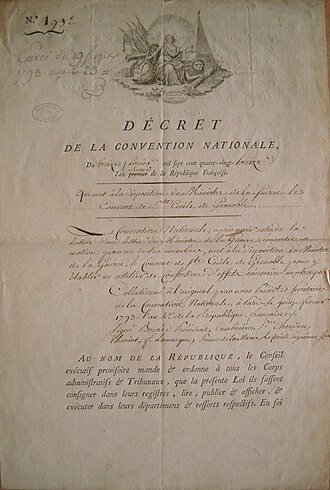 N.° 193e
Envoi du 19 février
1793
DÉCRET
DE LA CONVENTION NATIONALE,
Du treize février mil sept cent quatre-vingt-treize
l'an second de la République Françoise.
Qui met à la disposition du Ministre de la Guerre le
Couvent de Ste Cécile de Grenoble.
La Convention Nationale, après avoir entendu la
lecture d'une lettre du Ministre de la Guerre convertie en
motion par un de ses membres, met à la disposition du Ministre
de la Guerre le Couvent de Ste Cécile de Grenoble, pour y
établir un atelier de confection d'effets
Collationné à l'original, par nous Président et Secrétaires
de la Convention Nationale, à Paris, le quinze février
1793. l'an 2e de la République française.
Signé Bréard Président,
P. Choudieu
Thuriot, Lamarque, Prieur de la Marne, Le Cointe-Puyraveau
AU NOM DE LA RÉPUBLIQUE, le Conseil
exécutif provisoire mande & ordonne à tous les Corps
administratifs & Tribunaux, que la présente Loi ils fassent
consigner dans leurs registres, lire, publier & afficher, &
exécuter dans leurs départemens & ressorts respectifs. En foi